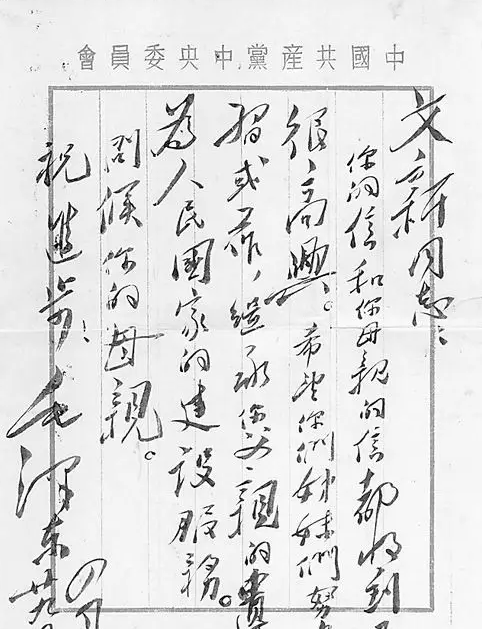 中國共産黨中央委員會
文新同志：
你的信和你母親的信都收到
很高興。希望你們姊妹們努
習或工作，繼承你父親的遺
為人民國家的建設服務。
問候你的母親。
祝進步！
毛澤東
四月
廿九